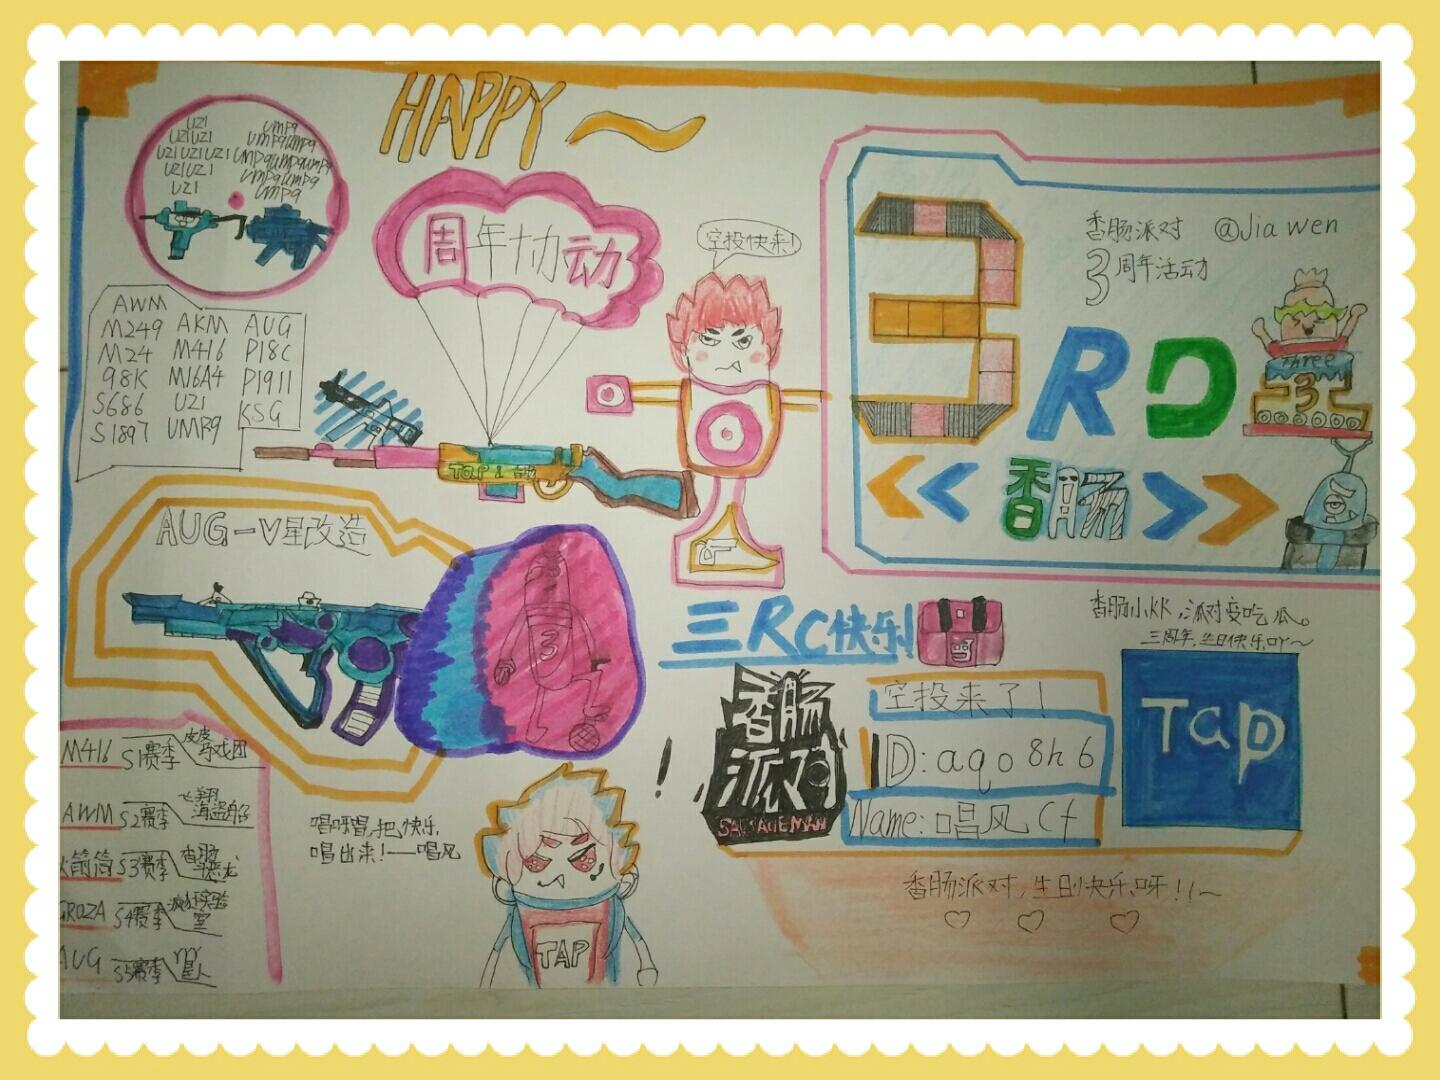 HAPPY～
UZI
UZIUZI
UZIUZIUZI
UZIUZI
UZI
UMP9
UMP9UMP9
UMP9UMP9UMP9
UMP9UMP9
UMP9
周年活动
空投快来!
AWM
M249 AKM AUG
M24 M416 P18C
98K M16A4 P1911
S686 UZI KSG
S1897 UMP9
TAP &
香肠派对 @Jia wen
3周年活动
3RD
Three
3
<<香肠>>
AUG-V星改造
3
三RC快乐!
香肠小KK,派对要吃瓜。
三周年,生日快乐吖~
香肠派对
SAUSAGE MAN
空投来了!
ID:aqo8h6
Name:唱风Cf
Tap
M416 S1赛季 皮皮马戏团
AWM S2赛季 飞翔海盗船
火箭筒 S3赛季 香肠恐龙
GROZA S4赛季 疯狂实验室
AUG S5赛季
唱呀唱,把快乐,
唱出来!——唱风
!
TAP
香肠派对,生日快乐呀!!~